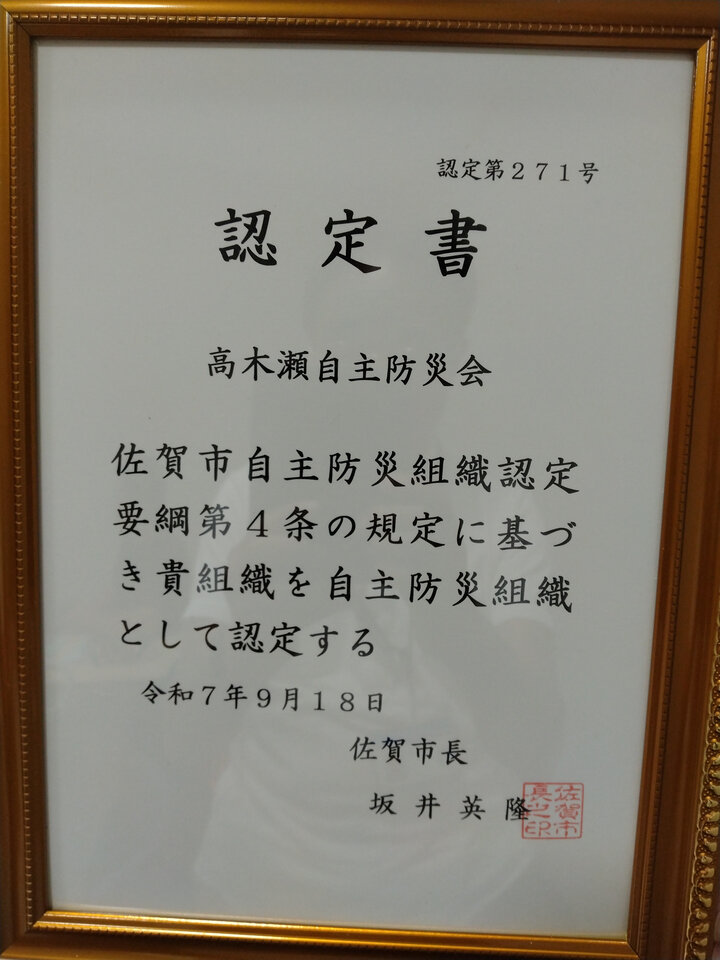 認定第２７１号
認定書
高木瀬自主防災会
佐賀市自主防災組織認定
要綱第４条の規定に基づ
き貴組織を自主防災組織
として認定する
令和７年９月１８日
佐賀市長
坂井英隆
佐賀市長之印